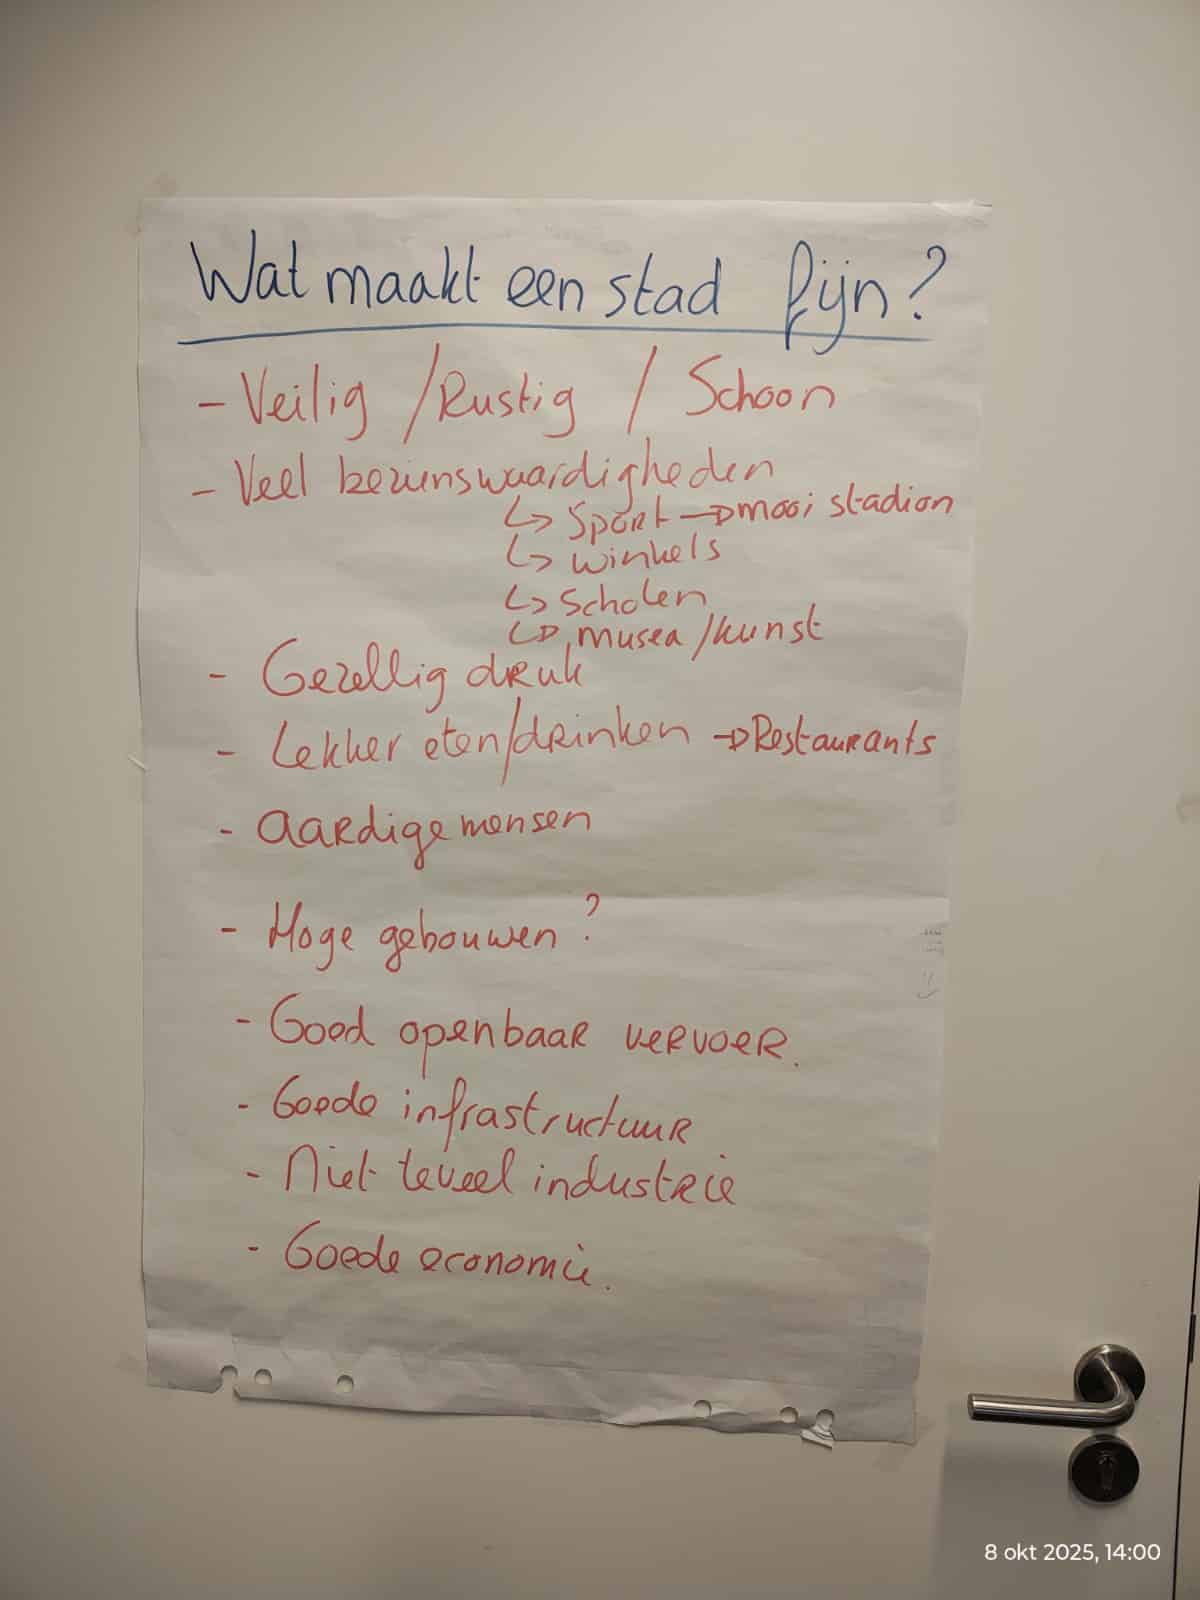 Wat maakt een stad fijn?
- Veilig / Rustig / Schoon
- Veel bezienswaardigheden
↳ Sport → mooi stadion
↳ winkels
↳ Scholen
↳ musea / kunst
- Gezellig druk
- Lekker eten/drinken → Restaurants
- Aardige mensen
- Hoge gebouwen?
- Goed openbaar vervoer.
- Goede infrastructuur
- Niet teveel industrie
- Goede economie.
8 okt 2025, 14:00